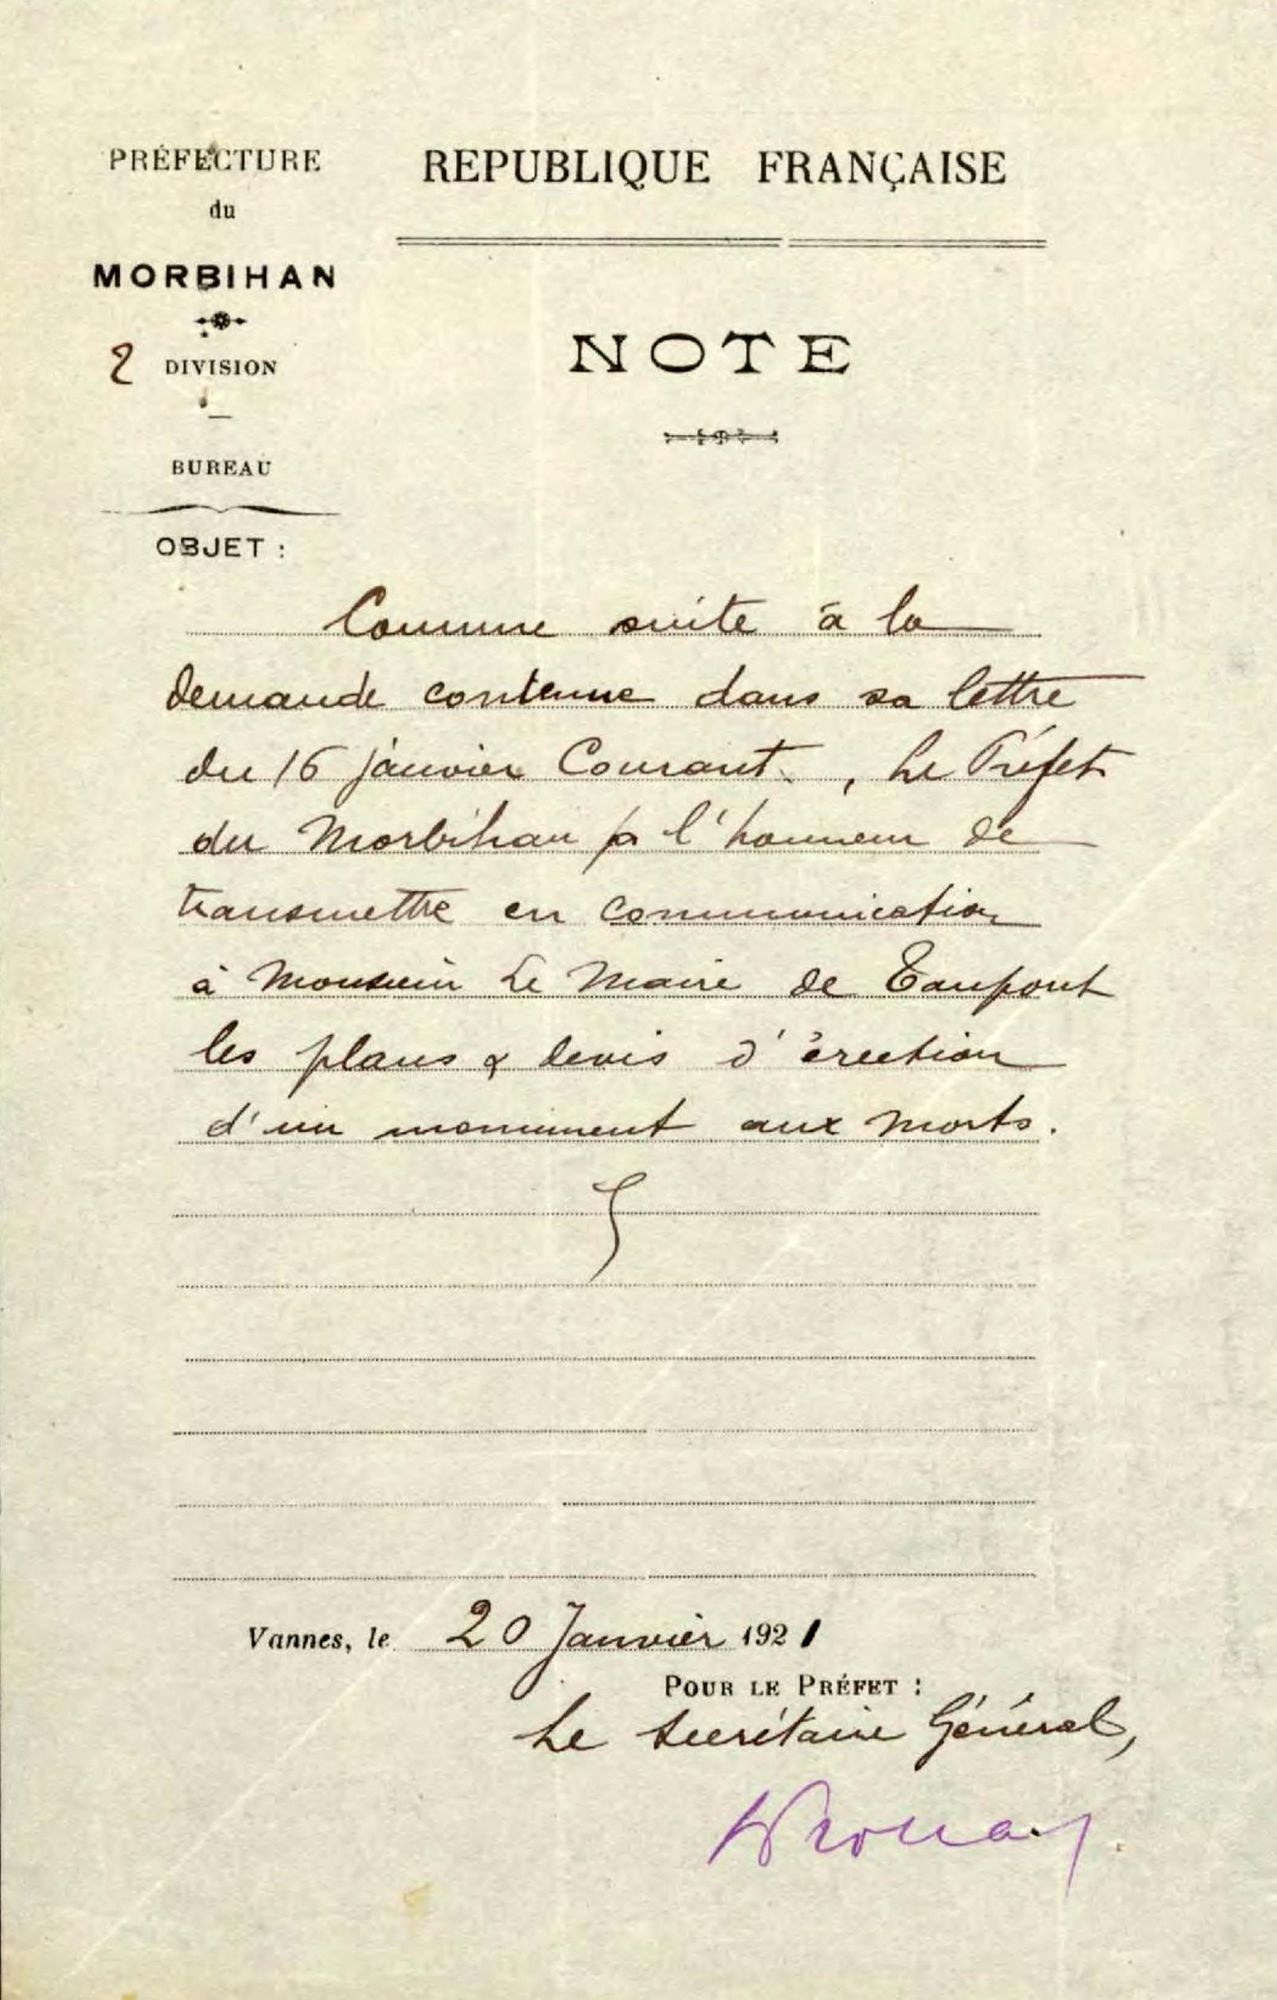 PRÉFECTURE
du
MORBIHAN
2 DIVISION
BUREAU
OBJET :
REPUBLIQUE FRANÇAISE
NOTE
Comme suite à la
demande contenue dans sa lettre
du 16 janvier Courant, Le Préfet
du Morbihan a l'honneur de
transmettre en communication
à Monsieur Le Maire de Taupont
les plans & devis d'érection
d'un monument aux morts.
Vannes, le 20 Janvier 1921
POUR LE PRÉFET :
Le Secrétaire Général,